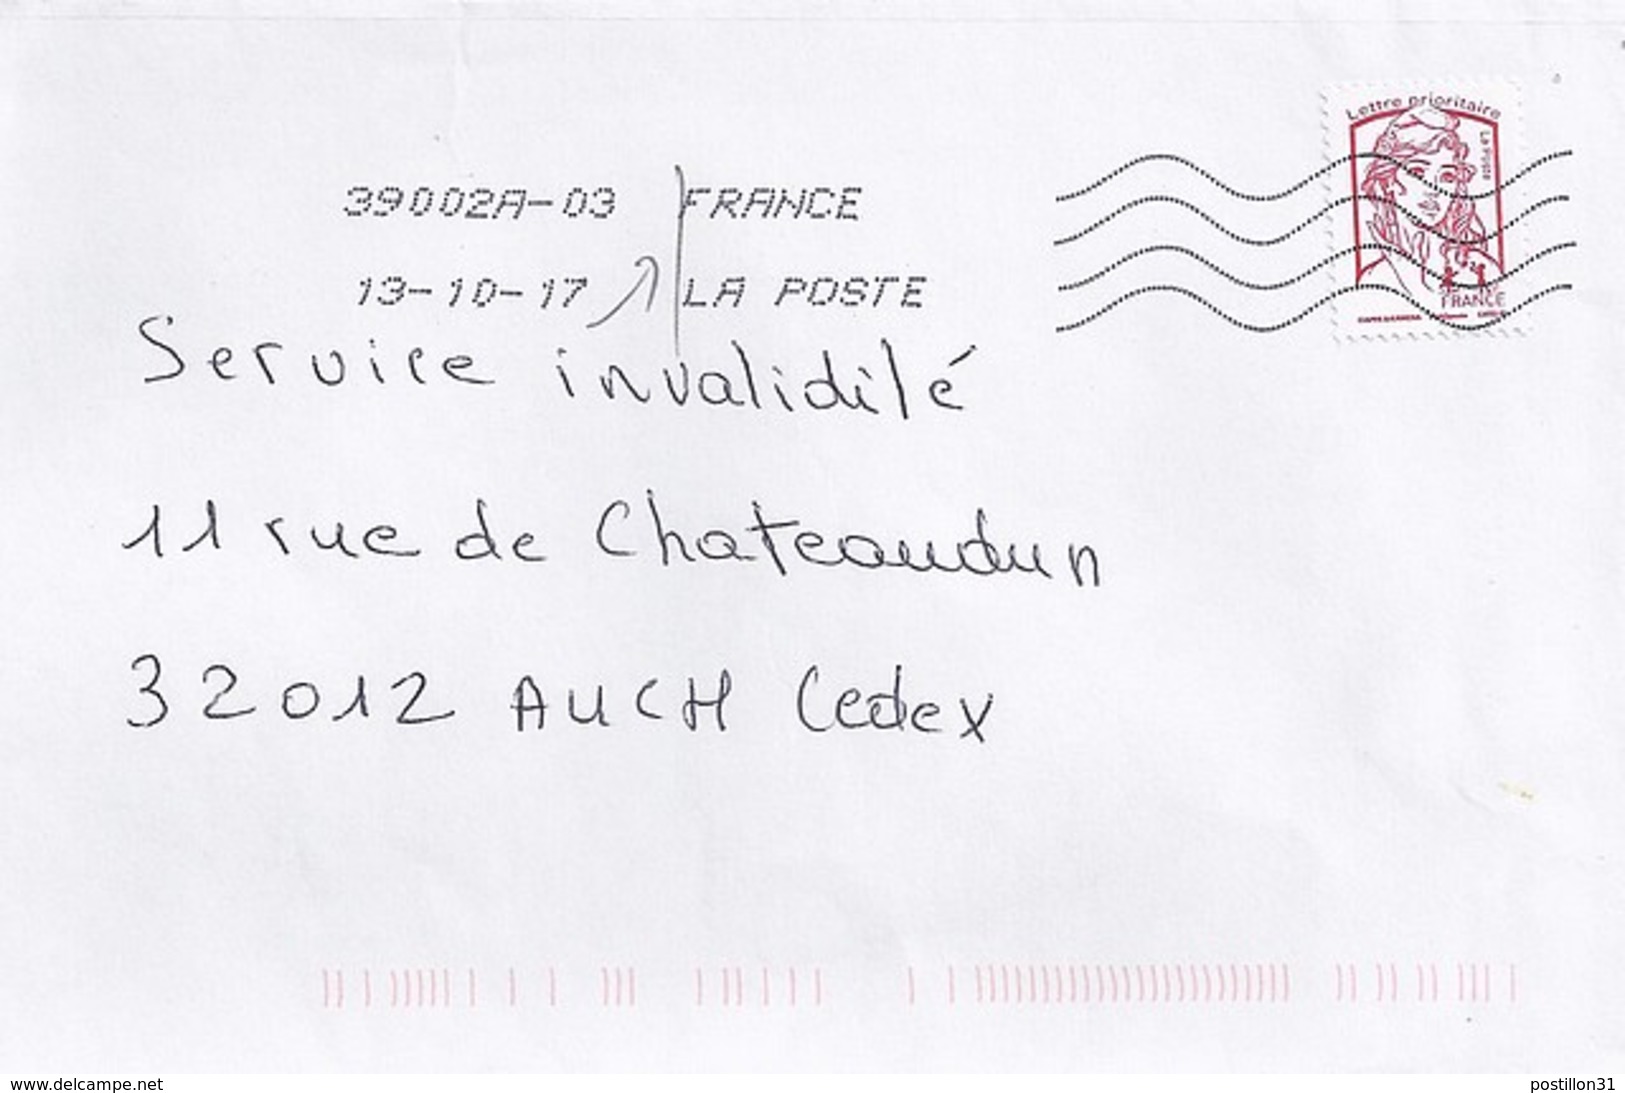 Lettre prioritaire
LA POSTE
39002A-03 FRANCE
13-10-17 LA POSTE
FRANCE
Service invalidité
11 rue de Chateaudun
32012 AUCH Cedex
www.delcampe.net
postillon31